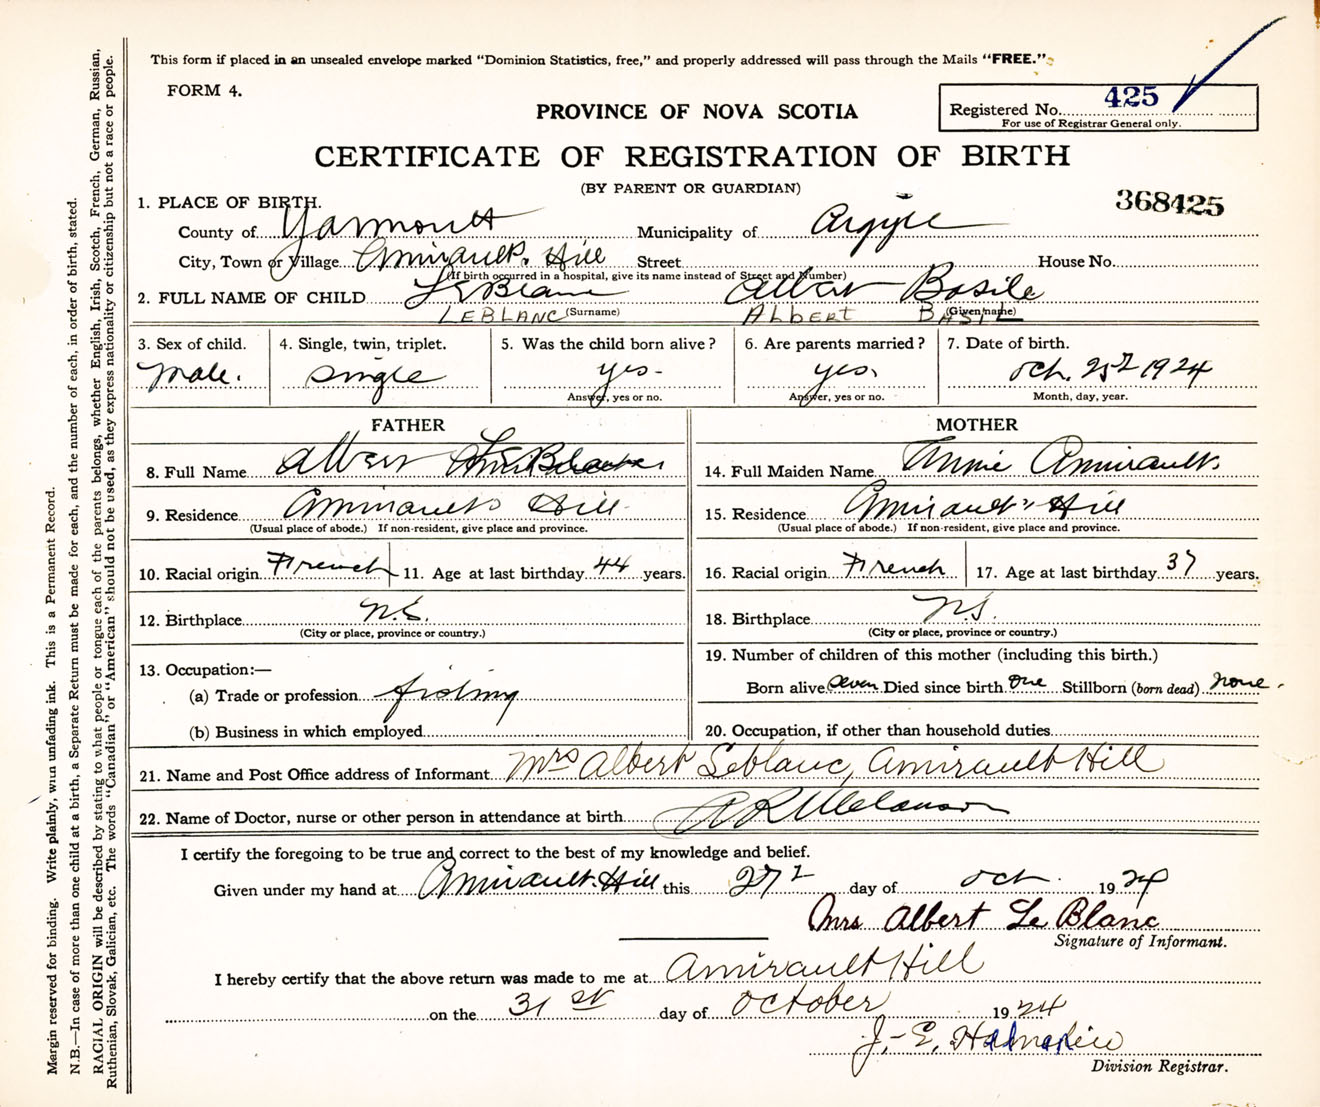 This form if placed in an unsealed envelope marked “Dominion Statistics, free,” and properly addressed will pass through the Mails “FREE.”
FORM 4.
PROVINCE OF NOVA SCOTIA
Registered No. 425
For use of Registrar General only.
CERTIFICATE OF REGISTRATION OF BIRTH
(BY PARENT OR GUARDIAN)
368425
1. PLACE OF BIRTH.
County of Yarmouth Municipality of Argyle
City, Town or Village Amirault's Hill Street House No.
(If birth occurred in a hospital, give its name instead of Street and Number)
2. FULL NAME OF CHILD LeBlanc Albert Basile
LEBLANC (Surname) ALBERT BASIL (Given name)
3. Sex of child. 4. Single, twin, triplet. 5. Was the child born alive? 6. Are parents married? 7. Date of birth.
Male. Single yes- yes. Oct. 25th 1924
Answer, yes or no. Answer, yes or no. Month, day, year.
FATHER MOTHER
8. Full Name Albert LeBlanc 14. Full Maiden Name Annie Amirault
9. Residence Amirault's Hill 15. Residence Amirault's Hill
(Usual place of abode.) If non-resident, give place and province. (Usual place of abode.) If non-resident, give place and province.
10. Racial origin French 11. Age at last birthday 44 years. 16. Racial origin French 17. Age at last birthday 37 years.
12. Birthplace N.S. 18. Birthplace N.S.
(City or place, province or country.) (City or place, province or country.)
13. Occupation:— 19. Number of children of this mother (including this birth.)
(a) Trade or profession fishing Born alive seven Died since birth one Stillborn (born dead) none.
(b) Business in which employed 20. Occupation, if other than household duties
21. Name and Post Office address of Informant Mrs Albert Leblanc, Amirault Hill
22. Name of Doctor, nurse or other person in attendance at birth A R Melanson
I certify the foregoing to be true and correct to the best of my knowledge and belief.
Given under my hand at Amirault's Hill this 27th day of Oct. 1924
Mrs Albert Le Blanc
Signature of Informant.
I hereby certify that the above return was made to me at Amirault Hill
on the 31st day of October 1924
J.-E.
Division Registrar.
Margin reserved for binding. Write plainly, with unfading ink. This is a Permanent Record.
N.B.—In case of more than one child at a birth, a Separate Return must be made for each, and the number of each, in order of birth, stated.
RACIAL ORIGIN will be described by stating to what people or tongue each of the parents belongs, whether English, Irish, Scotch, French, German, Russian,
Ruthenian, Slovak, Galician, etc. The words “Canadian” or “American” should not be used, as they express nationality or citizenship but not a race or people.